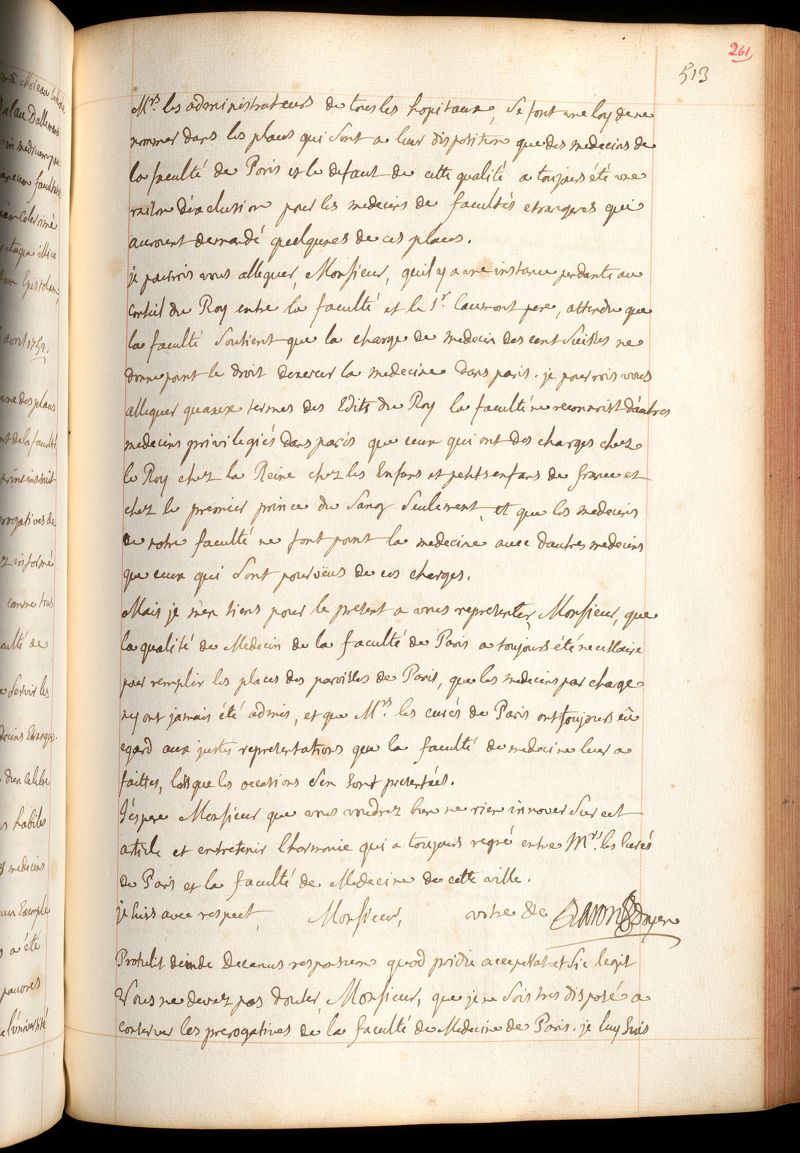 261
513
Mrs. les administrateurs de tous les hopitaux, se font une loy de ne
nommer dans les places qui sont a leur disposition que des medecins de
la faculté de Paris et le defaut de cette qualité a toujours été une
raison d'exclusion pour les medecins de facultés etrangeres qui
auroient demandé quelqu'unes de ces places.
je pourrois vous alleguer, Monsieur, qu'il y a une instance pendante au
Conseil du Roy entre la faculté et le Sr. Caumont pere, attendu que
la faculté soutient que la charge de medecin des cent suisses ne
donne point le droit d'exercer la medecine dans paris. je pourrois vous
alleguer qu'aux termes des Edits du Roy la faculté ne reconnoist d'autres
medecins privilegiés dans paris que ceux qui ont des charges chez
le Roy chez la Reine chez les Enfans et petits enfans de france et
chez le premier prince du sang seulement, et que les medecins
de notre faculté ne font point la medecine avec d'autres medecins
que ceux qui sont pourvëus de ces charges.
Mais je m'en tiens pour le present a vous representer, Monsieur, que
la qualité de Medecin de la faculté de Paris a toujours été necessaire
pour remplir les places des paroisses de Paris, que les medecins par charge
n'y ont jamais été admis, et que Mrs. les curés de Paris ont toujours eû
egard aux justes representations que la faculté de medecine leur a
faittes, lorsque les occasions s'en sont presentées.
J'espere Monsieur que vous voudrez bien ne rien innover sur cet
article et entretenir l'harmonie qui a toujours regné entre Mrs. les Curés
de Paris et la faculté de Medecine de cette ville.
je suis avec respect, Monsieur, votre &c Baron Doyen
Protulit deinde Decanus responsum quod pridie acceperat et sic legit
Vous ne devez pas douter, Monsieur, que je ne sois tres disposé a
conserver les prerogatives de la faculté de Medecine de Paris. je luy suis